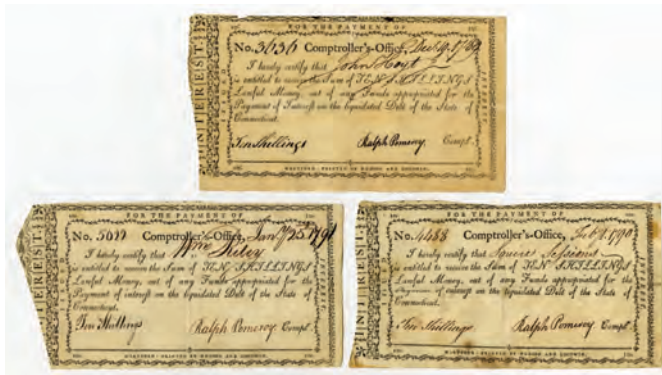 FOR THE PAYMENT OF
INTEREST.
No. 3636 Comptroller's-Office, Dec 19 1789
I hereby certify that John Hoyt
is entitled to receive the Sum of TEN SHILLINGS
Lawful Money, out of any Funds appropriated for the
Payment of Interest on the liquidated Debt of the State of
Connecticut.
Ten Shillings Ralph Pomeroy Compt.
HARTFORD: PRINTED BY HUDSON AND GOODWIN.
FOR THE PAYMENT OF
INTEREST.
No. 5022 Comptroller's-Office, Jan 25 1791
I hereby certify that Wm
is entitled to receive the Sum of TEN SHILLINGS
Lawful Money, out of any Funds appropriated for the
Payment of interest on the liquidated Debt of the State of
Connecticut.
Ten Shillings Ralph Pomeroy Compt.
HARTFORD: PRINTED BY HUDSON AND GOODWIN.
FOR THE PAYMENT OF
INTEREST.
No. 4488 Comptroller's-Office, Feb 1790
I hereby certify that Squire Sessions
is entitled to receive the Sum of TEN SHILLINGS
Lawful Money, out of any Funds appropriated for the
Payment of interest on the liquidated Debt of the State of
Connecticut.
Ten Shillings Ralph Pomeroy Compt.
HARTFORD: PRINTED BY HUDSON AND GOODWIN.